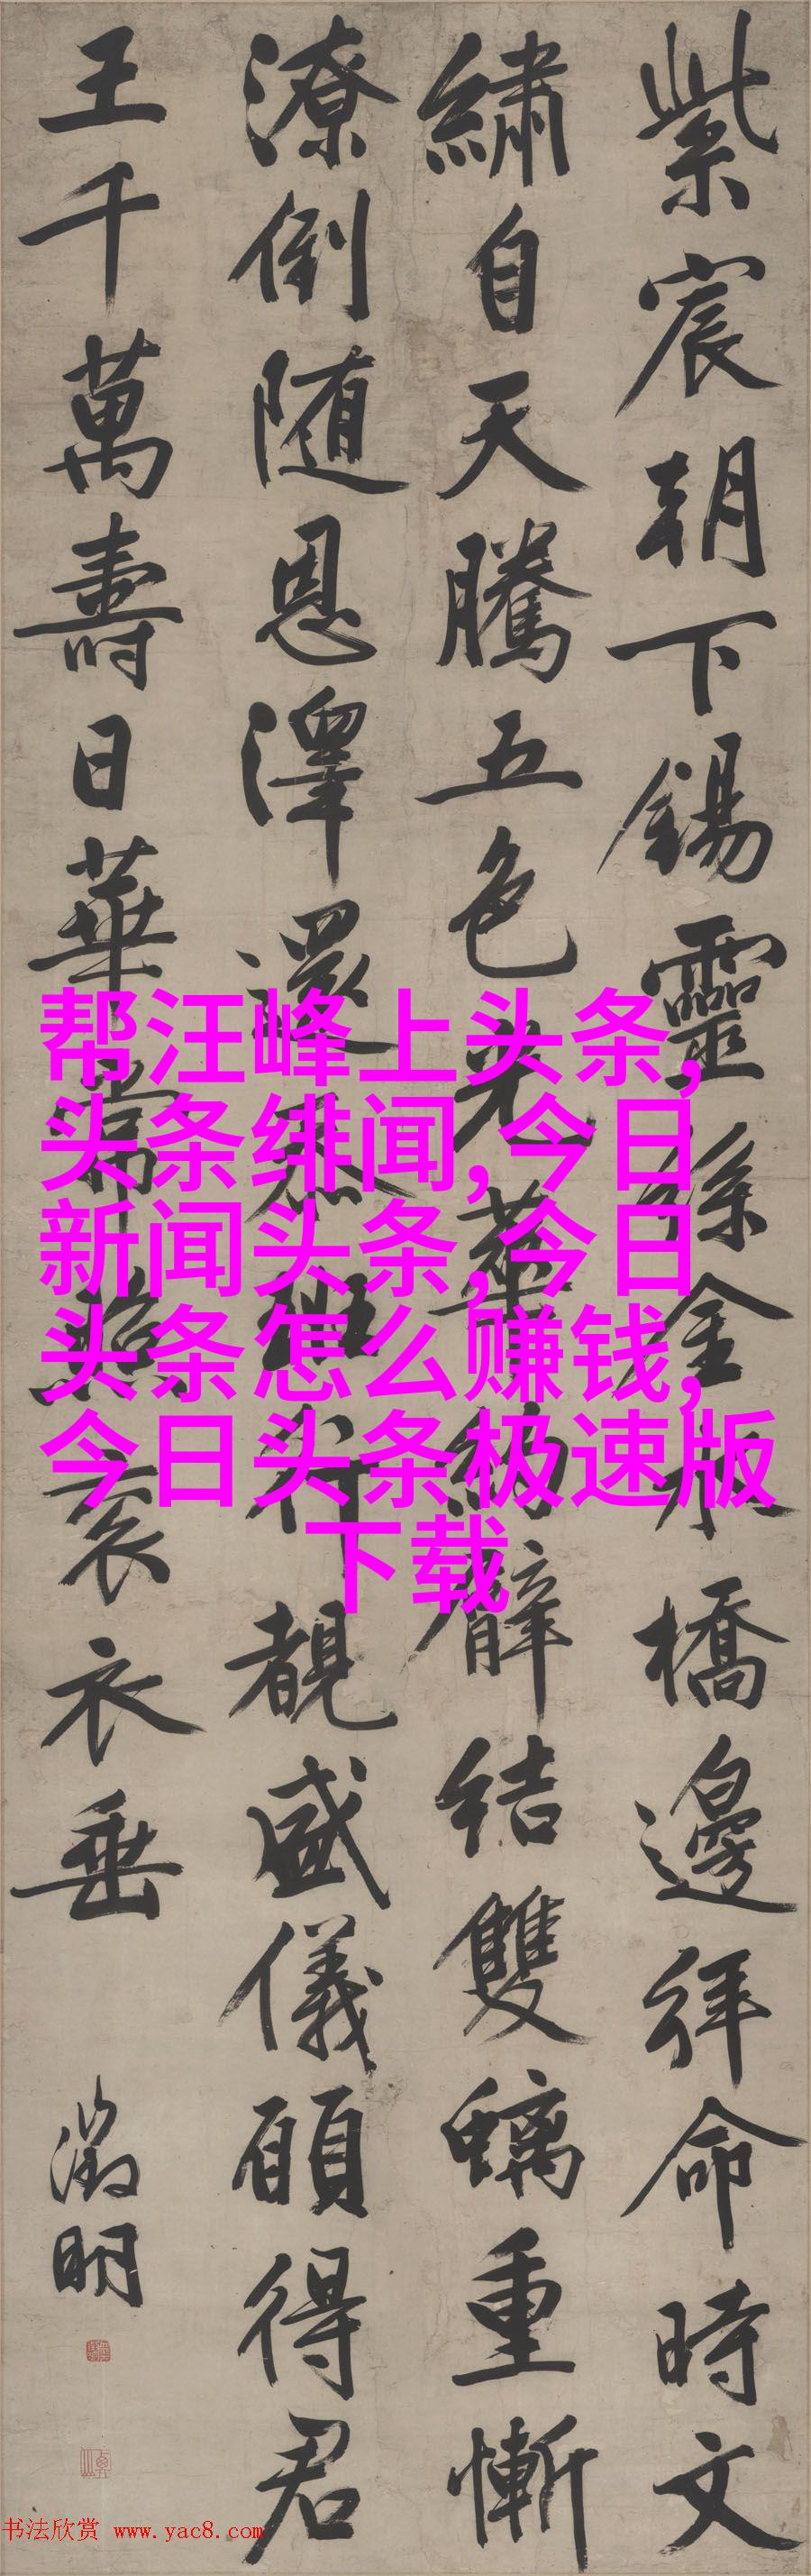 紫宸朝下錫靈絲金水橋邊拜命時文
繡自天騰五色光華約臂結雙螭重慚
潦倒随恩澤還忝班行覩盛儀願得君
王千萬壽日華常照袞衣垂
徵明
帮汪峰上头条,
头条绯闻,今日
新闻头条,今日
头条怎么赚钱,
今日头条极速版
下载
书法欣赏 www.yac8.com